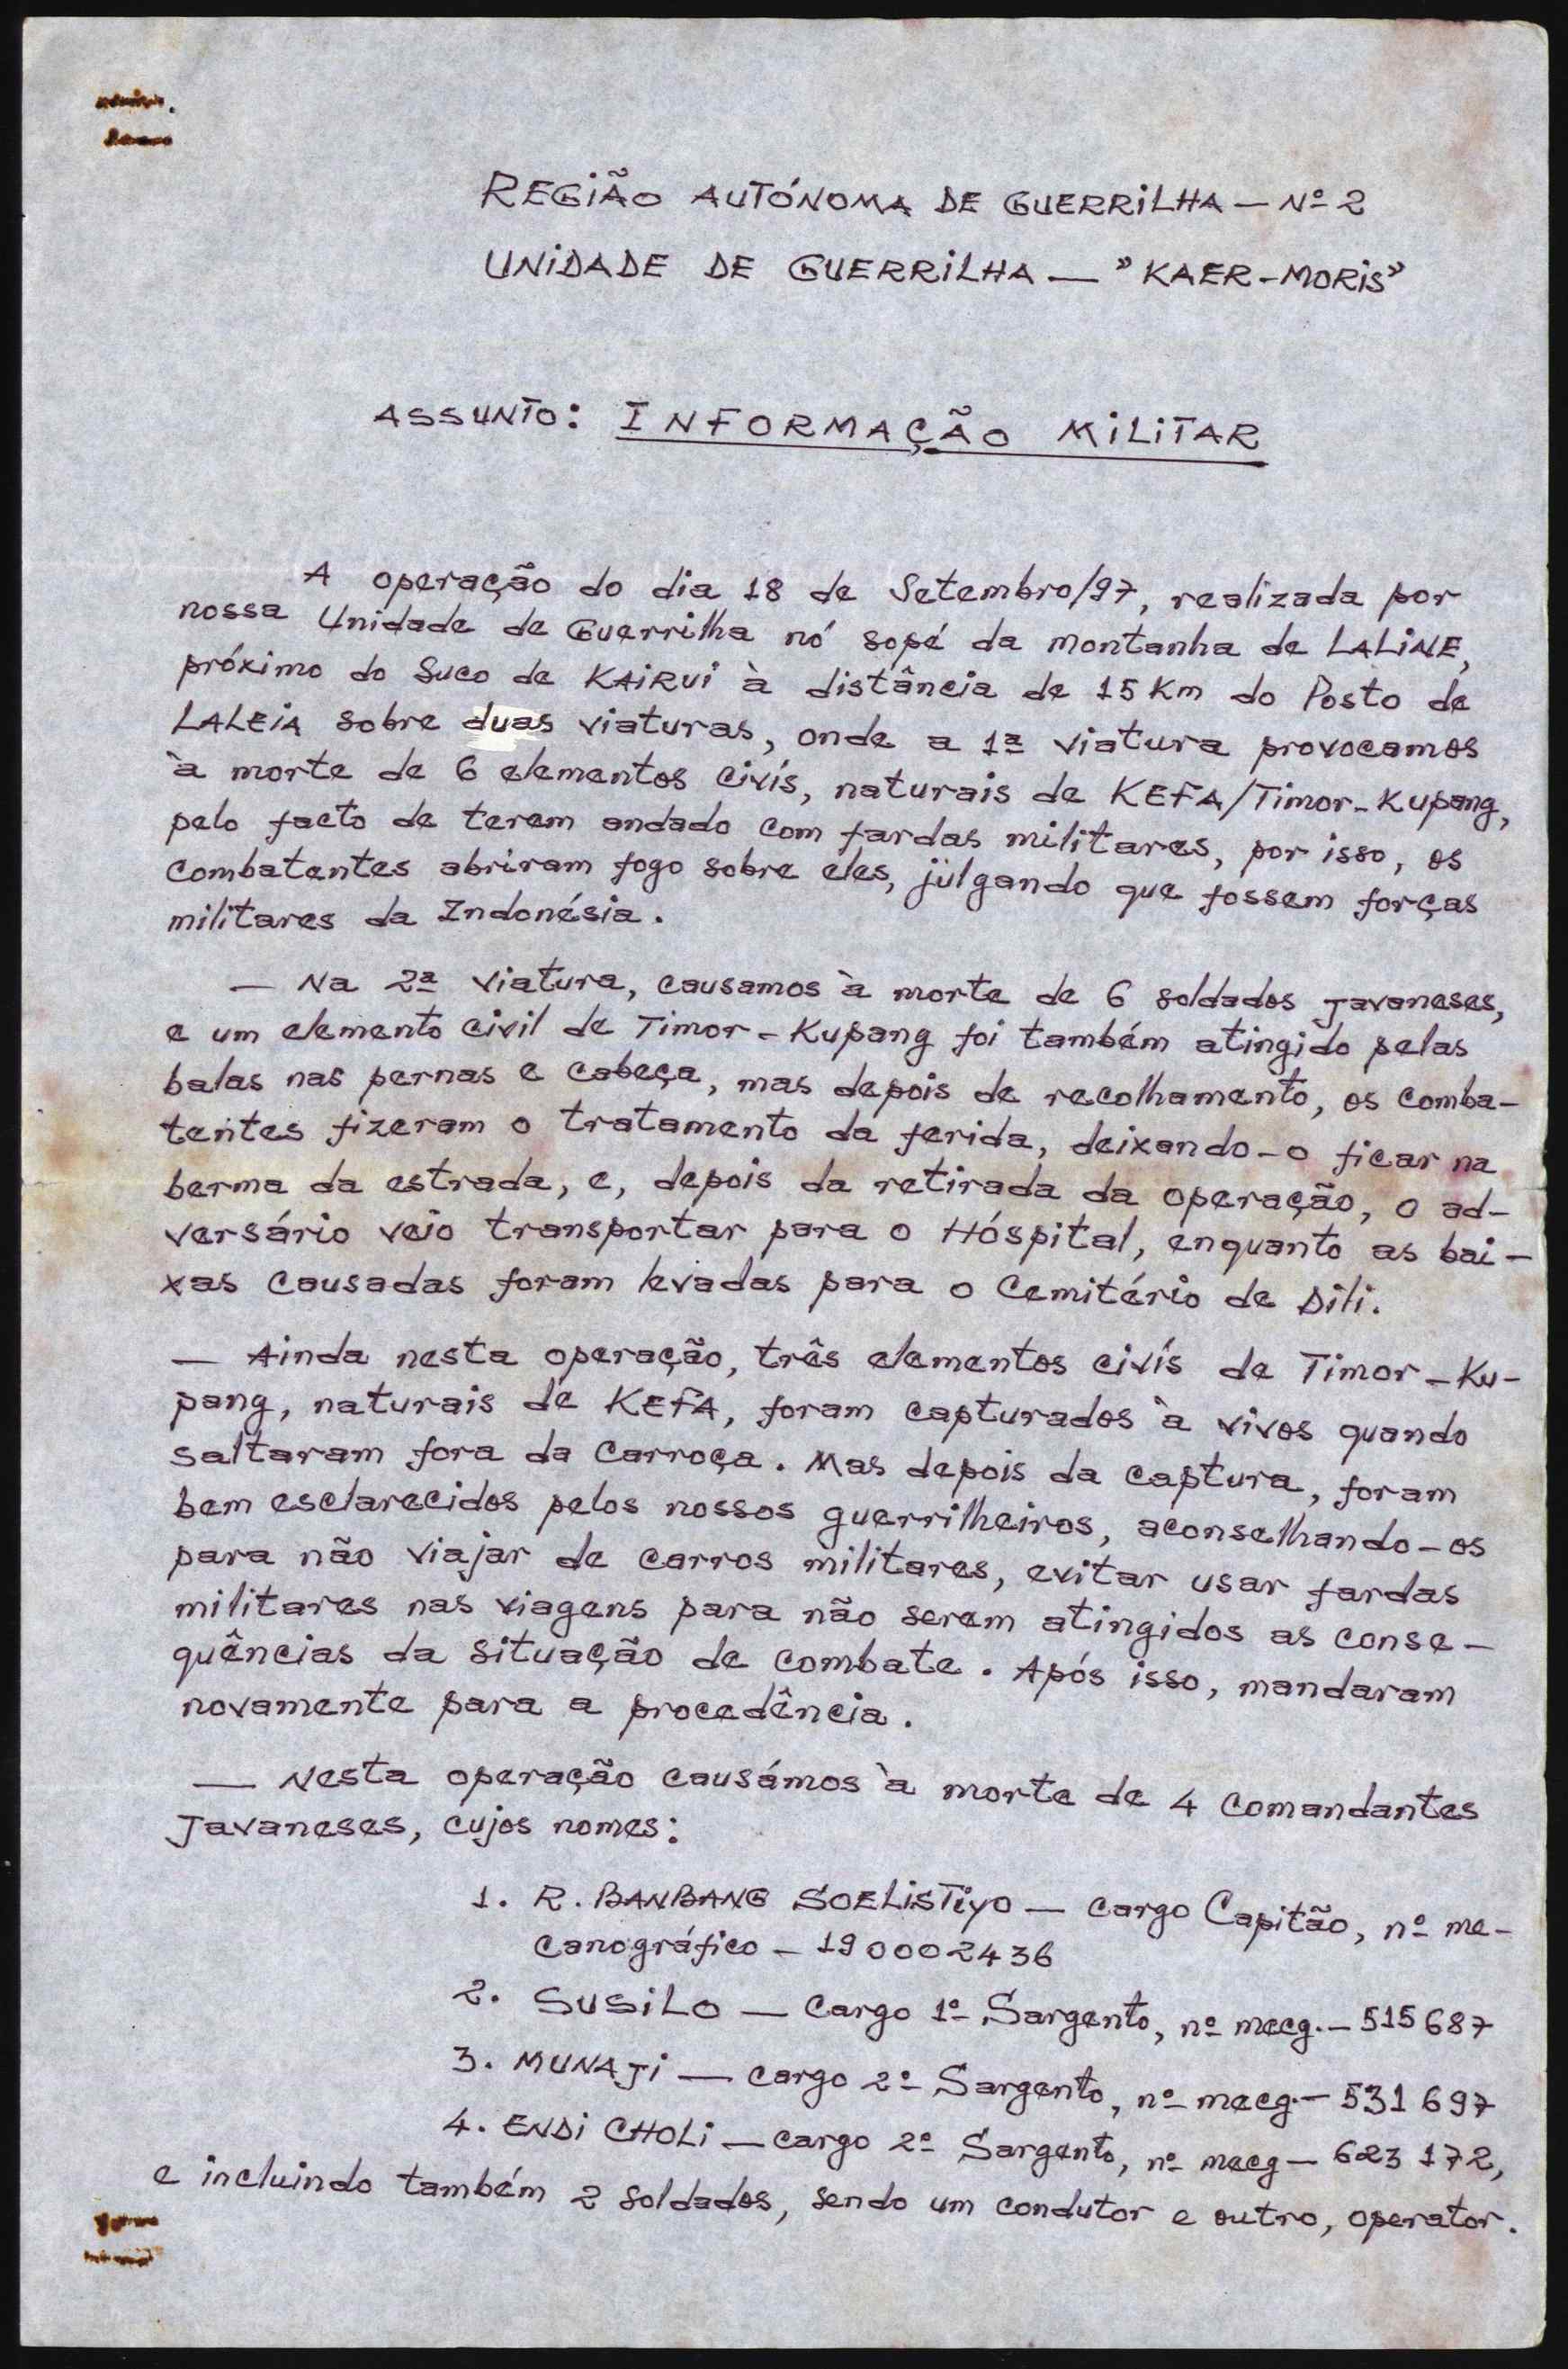 REGIÃO AUTÓNOMA DE GUERRILHA — Nº 2
UNIDADE DE GUERRILHA — "KAER-MORIS"
ASSUNTO: INFORMAÇÃO MILITAR
A operação do dia 18 de Setembro/97, realizada por
nossa Unidade de Guerrilha nó sopé da montanha de LALINE,
próximo do Suco de KAIRUI à distância de 15 Km do Posto de
LALEIA sobre duas viaturas, onde a 1ª viatura provocamos
à morte de 6 elementos civís, naturais de KEFA/Timor-Kupang,
pelo facto de terem andado com fardas militares, por isso, os
combatentes abriram fogo sobre eles, julgando que fossem forças
militares da Indonésia.
— Na 2ª viatura, causamos à morte de 6 soldados Javaneses,
e um elemento civil de Timor-Kupang foi também atingido pelas
balas nas pernas e cabeça, mas depois de recolhamento, os comba-
tentes fizeram o tratamento da ferida, deixando-o ficar na
berma da estrada, e, depois da retirada da operação, o ad-
versário veio transportar para o Hóspital, enquanto as bai-
xas causadas foram levadas para o Cemitério de Dili.
— Ainda nesta operação, três elementos civís de Timor-Ku-
pang, naturais de KEFA, foram capturados à vivos quando
saltaram fora da carroça. Mas depois da captura, foram
bem esclarecidos pelos nossos guerrilheiros, aconselhando-os
para não viajar de carros militares, evitar usar fardas
militares nas viagens para não serem atingidos as conse-
quências da situação de combate. Após isso, mandaram
novamente para a procedência.
— Nesta operação causámos à morte de 4 comandantes
Javaneses, cujos nomes:
1. R. BANBANG SOELISTIYO — cargo Capitão, nº me-
canográfico - 190002436
2. SUSILO — cargo 1º Sargento, nº mecg. - 515687
3. MUNAJI — cargo 2º Sargento, nº mecg. - 531697
4. ENDI CHOLI — cargo 2º Sargento, nº mecg - 623172,
e incluindo também 2 soldados, sendo um condutor e outro, operator.